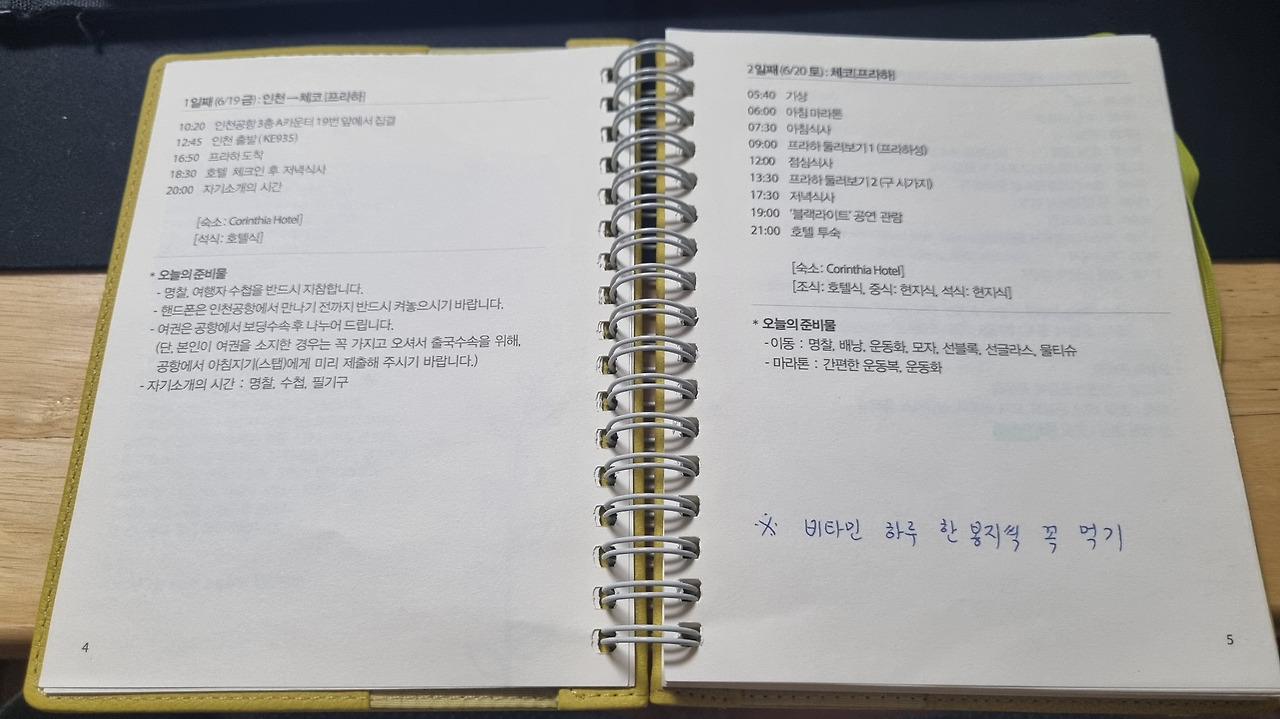 1일째 (6/19 금) : 인천 → 체코 [프라하]
10:20 인천공항 3층 A카운터 19번 앞에서 집결
12:45 인천 출발 ( KE935)
16:50 프라하 도착
18:30 호텔 체크인 후 저녁식사
20:00 자기소개의 시간
[숙소 : Corinthia Hotel]
[석식 : 호텔식]
* 오늘의 준비물
- 명찰, 여행자 수첩을 반드시 지참합니다.
- 핸드폰은 인천공항에서 만나기 전까지 반드시 켜놓으시기 바랍니다.
- 여권은 공항에서 보딩수속 후 나누어 드립니다.
(단, 본인이 여권을 소지한 경우는 꼭 가지고 오셔서 출국수속을 위해,
공항에서 아침지기(스탭)에게 미리 제출해 주시기 바랍니다.)
- 자기소개의 시간 : 명찰, 수첩, 필기구
4
2일째 (6/20 토) : 체코[프라하]
05:40 기상
06:00 아침 마라톤
07:30 아침식사
09:00 프라하 둘러보기 1 (프라하성)
12:00 점심식사
13:30 프라하 둘러보기 2 (구 시가지)
17:30 저녁식사
19:00 '블랙라이트' 공연 관람
21:00 호텔 투숙
[숙소 : Corinthia Hotel]
[조식 : 호텔식, 중식 : 현지식, 석식 : 현지식]
* 오늘의 준비물
- 이동 : 명찰, 배낭, 운동화, 모자, 선블록, 선글라스, 물티슈
- 마라톤 : 간편한 운동복, 운동화
※ 비타민 하루 한봉지씩 꼭 먹기
5